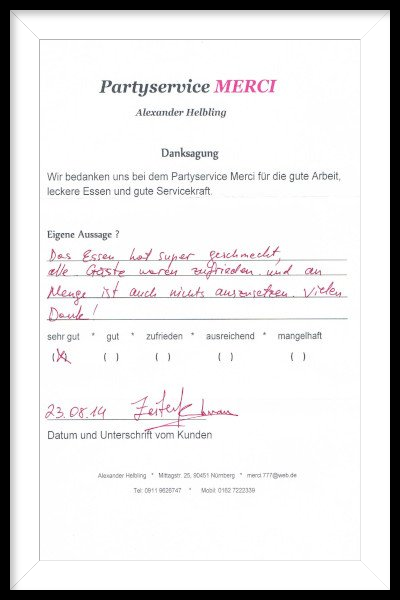 Partyservice MERCI
Alexander Helbling
Danksagung
Wir bedanken uns bei dem Partyservice Merci für die gute Arbeit,
leckere Essen und gute Servicekraft.
Eigene Aussage ?
Das Essen hat super geschmeckt,
alle Gäste waren zufrieden und an
Menge ist auch nichts auszusetzen. Vielen
Dank!
sehr gut * gut * zufrieden * ausreichend * mangelhaft
(X) ( ) ( ) ( ) ( )
23.08.14
Datum und Unterschrift vom Kunden
Alexander Helbling * Mittagstr. 25, 90451 Nürnberg * merci.777@web.de
Tel: 0911 9626747 * Mobil: 0162 7222339